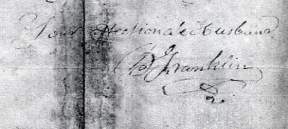 Your affectionate Husband
B Franklin